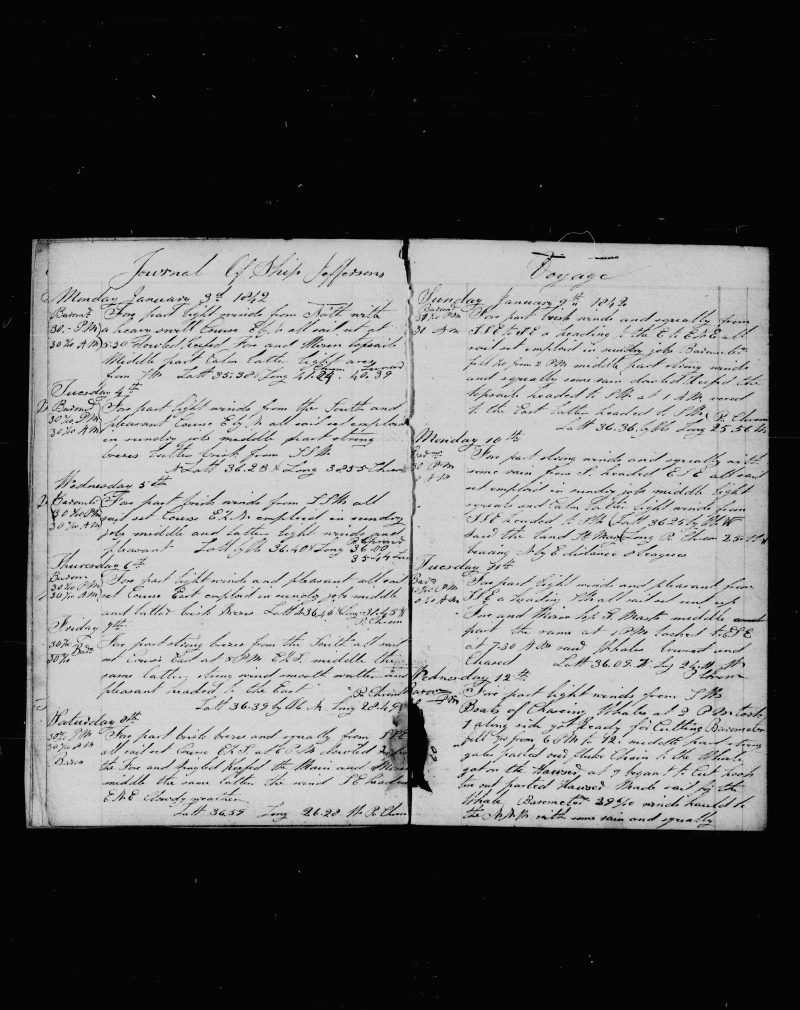 Journal Of Ship Jeffersons
Monday January 3d 1842
Barom
Fore part light winds from North with
30. PM a heavy swell Course E all sail set at
30 AM 5:30 Reefed Fore and Mizen topsails
Middle part Calm latter light airs
from Latt 35.38 Long 41.24 . 40.39
Tuesday 4th
Barom Fore part light winds from the South and
30 PM pleasant Course E by N all sail set employed
30 AM in sundry jobs middle part strong
brezes latter brisk from SSW
N Latt 36.28 Long 38.55 Chrom
Wednesday 5th
Barom Fore part brisk winds from SSW all
30 PM sail set Course E employed in sundry
30 AM jobs middle and latter light winds and
pleasant Latt by Ob 36.40 N Long 36.00
35.44
Thursday 6th
Barom Fore part light winds and pleasant all sail
30 PM set Course East employed in sundry jobs middle
30 AM and latter brisk brezes Latt 36.40 Long 32.45 W
P. Chrom
Friday 7th
30 Fore part strong brezes from the South all sail
30 Baro set Course East at 8 PM E middle the
same latter strong wind south watter and
pleasant headed to the East P. Chrom
Latt 36.39 by Ob N. Long 28.49
Saturday 8th
30 PM Fore part brisk brezes and squally from SSE
30 AM all sail set Course at 6 PM
Barom the Fore and single reefed the Main and Mizen
middle the same latter the wind SE headed
ENE Cloudy weather
Latt 36.55 Long 26.28 W P. Chrom
Voyage
Sunday January 9th 1842
Barom Fore part brisk winds and squally from
30 PM SSE to SE heading to the E all
30 AM sail set employed in sundry jobs Barometer
fell from 2 PM middle part strong winds
and squally some rain double reefed the
topsails headed to SW at 1 AM veered
to the East latter headed to SW P. Chrom
Latt 36.36 by Ob Long 25.56 W
Monday 10th
Bar Fore part strong winds and squally with
30 PM some rain from S. headed ESE all sail
AM set employed in sundry jobs middle light
squals and Calm latter light winds from
SSE headed to SW Latt 36.25 by Ob N
Saw the Land St Marys Long P. Chrom 25.
bearing N by E distance 8 leagues
Tuesday 11th
Baro Fore part light winds and pleasant from
PM SSE a heading SW all sail set
AM Fore and Mizen top masts middle
part the same at 1 PM tacked to ESE
at 7.30 AM saw Whales lowered and
Chased Latt 36.08 N Long 24 W
Chrom
Wednesday 12th
Barom Fore part light winds from SW
PM Boats of Chaseing Whales at 2 PM took
1 along side got ready for Cutting Barometer
fell from 6 PM to 12 middle part strong
gales parted our fluke Chain to the Whale
got on the Hauser at 7 began to Cut
parted Hauser Made sail by the
Whale Barometer 29 winds hauled to
the NNW with some rain and squally